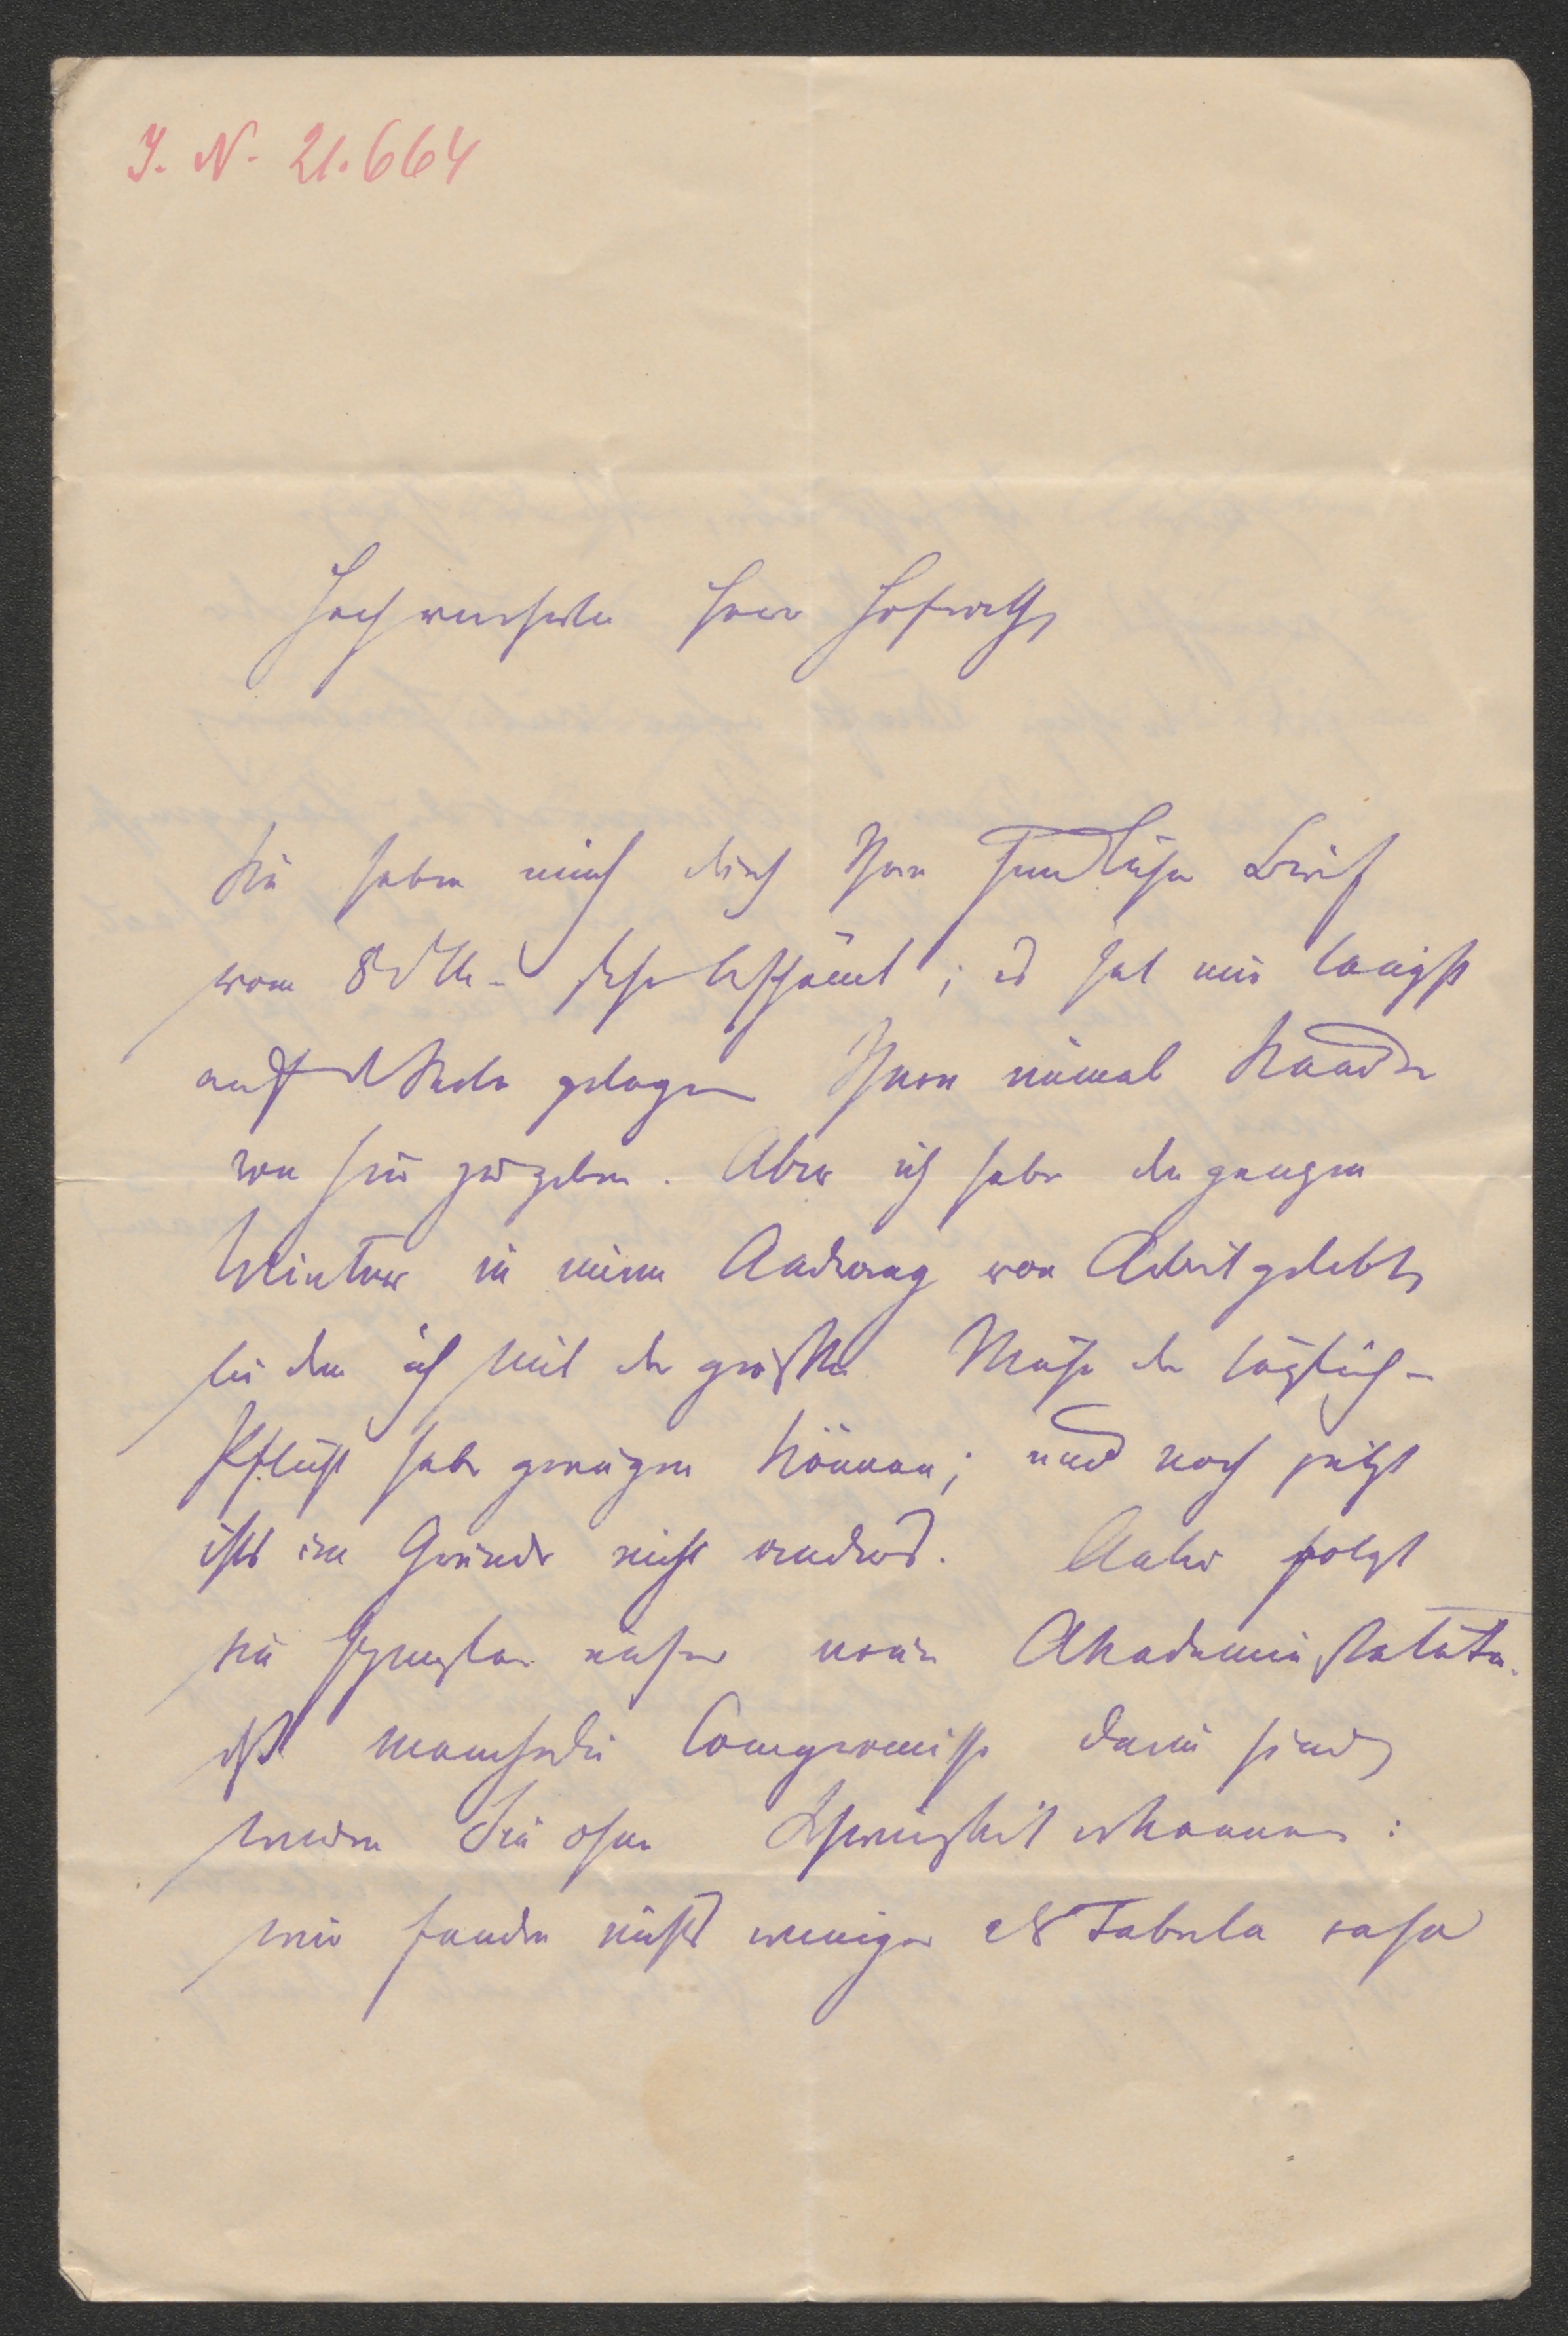 J. N. 21.664
Hochverehrter Herr Hofrath,
Sie haben mich durch Ihren freundlichen Brief
vom 8 d M. sehr beschämt; es hat mir längst
auf der Seele gelegen Ihnen einmal Kunde
von hier zu geben. Aber ich habe den ganzen
Winter in einem Andrang von Arbeit gelebt,
bei dem ich mit der größten Mühe der täglichen
Pflicht habe genügen können; und noch jetzt
ists im Grunde nicht anders. Anbei folgt
ein Exemplar unserer neuen Akademiestatuten.
Daß mancherlei Compromisse darin sind,
werden Sie ohne Schwierigkeit erkennen:
wir fanden nichts weniger als Tabula rasa